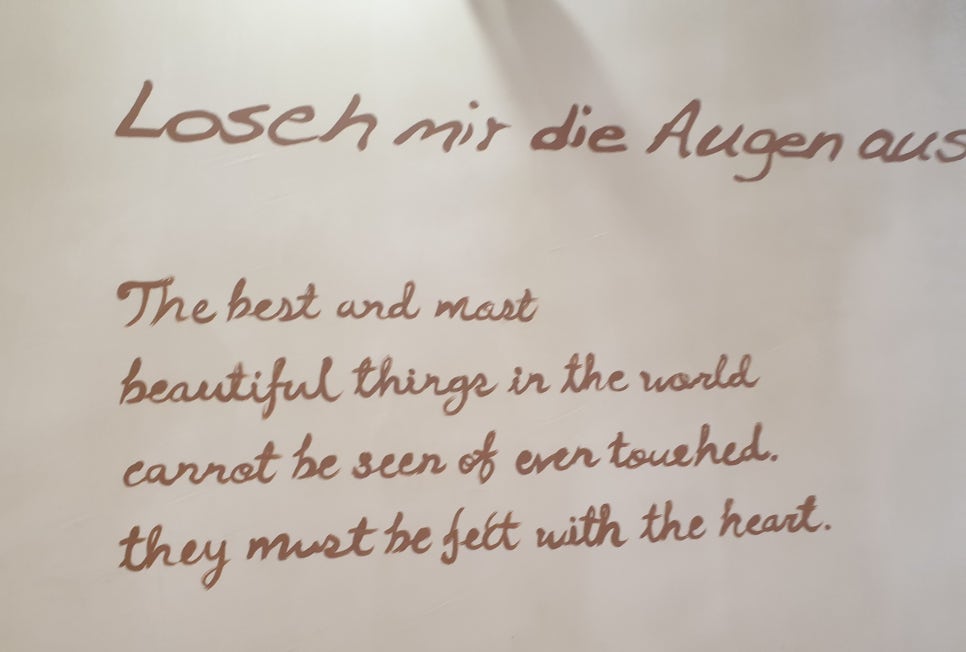 Losch mir die Augen aus
The best and most
beautiful things in the world
cannot be seen of even touched.
they must be felt with the heart.